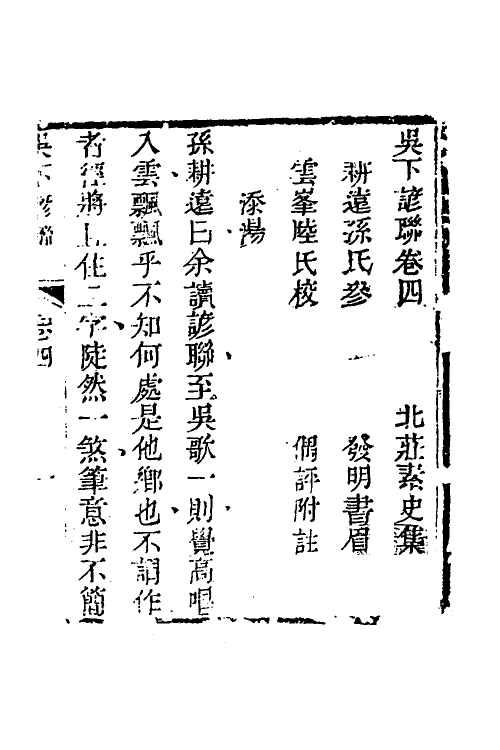 吳下諺聯卷四　北莊素史集
耕遠孫氏參　發明書眉
雲峯陸氏校　偶評附註
添湯
孫耕遠曰余讀諺聯至吳歌一則覺高唱
入雲飄飄乎不知何處是他鄉也不謂作
者徑將上住二字陡然一煞筆意非不簡
吳下諺聯　卷四　一